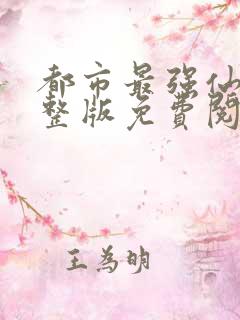 都市最强仙
整版免費閱
王为明